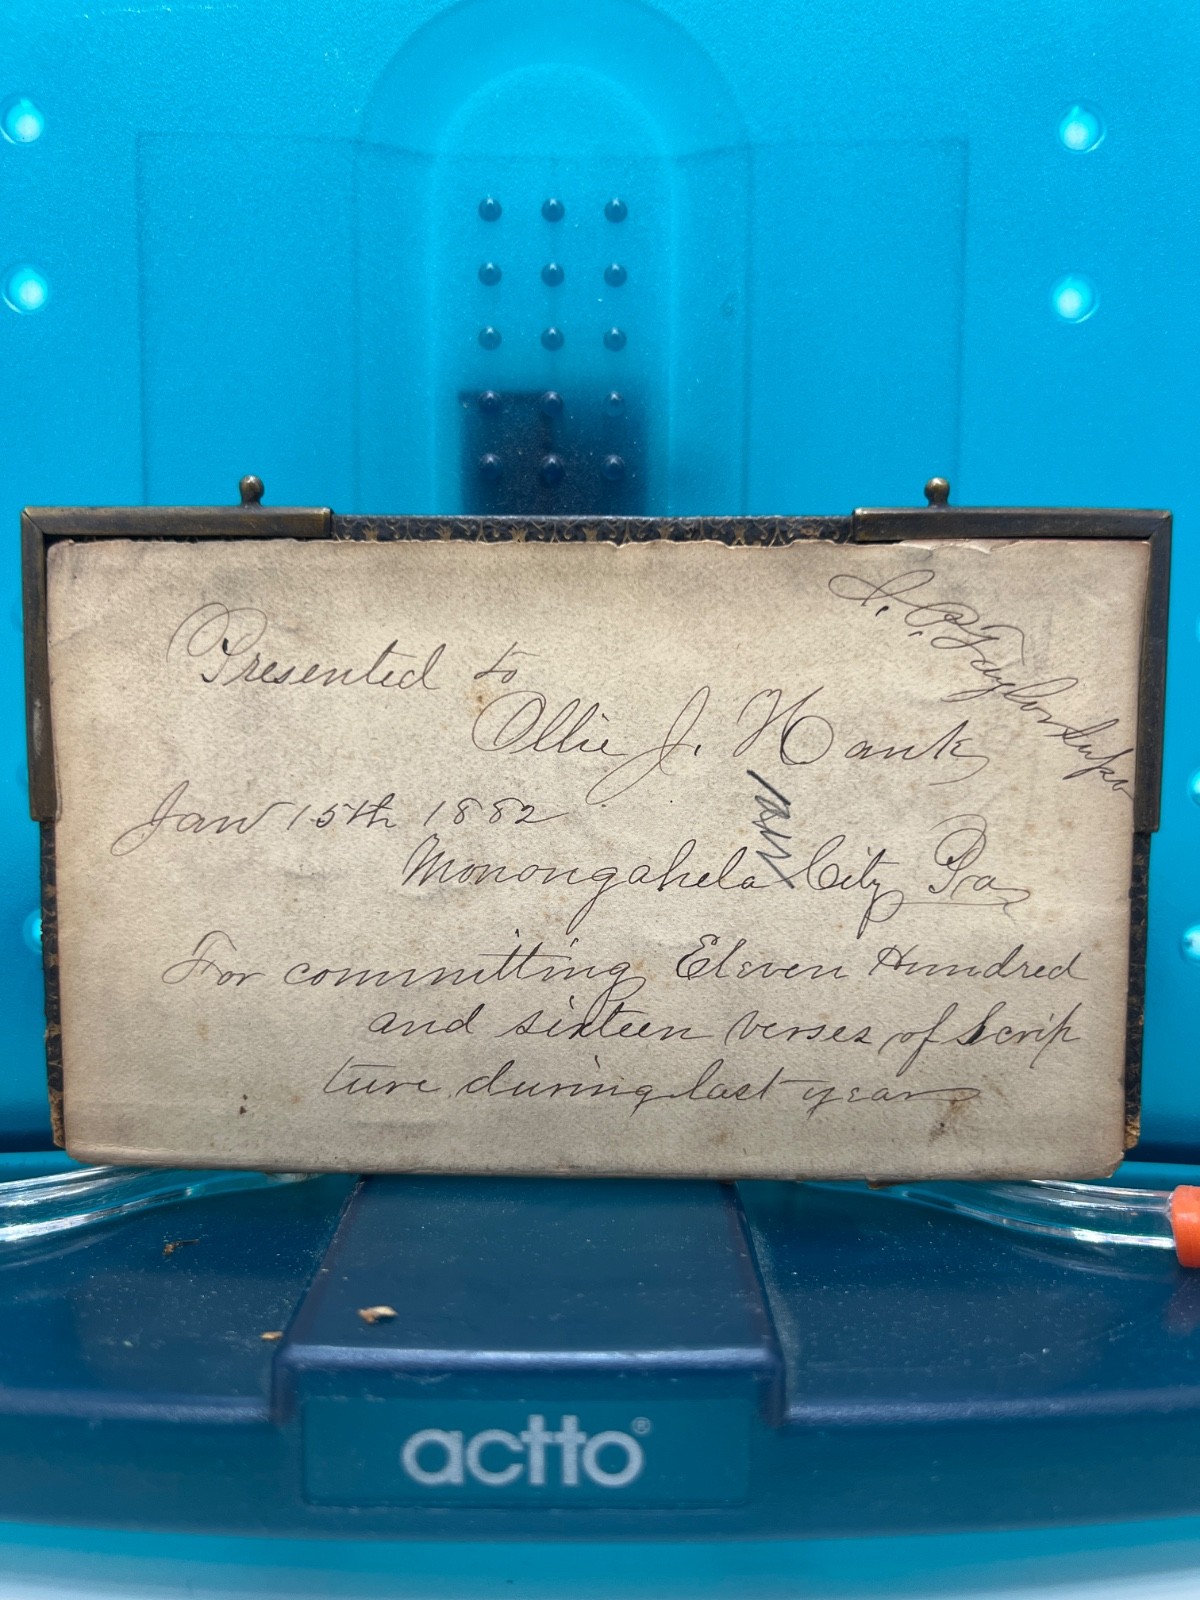 Presented to
Ollie J. Hank
Jan 15th 1882
Monongahela City Pa
For committing Eleven Hundred
and sixteen verses of Scrip
ture during last year
Taylor Supt
actto®